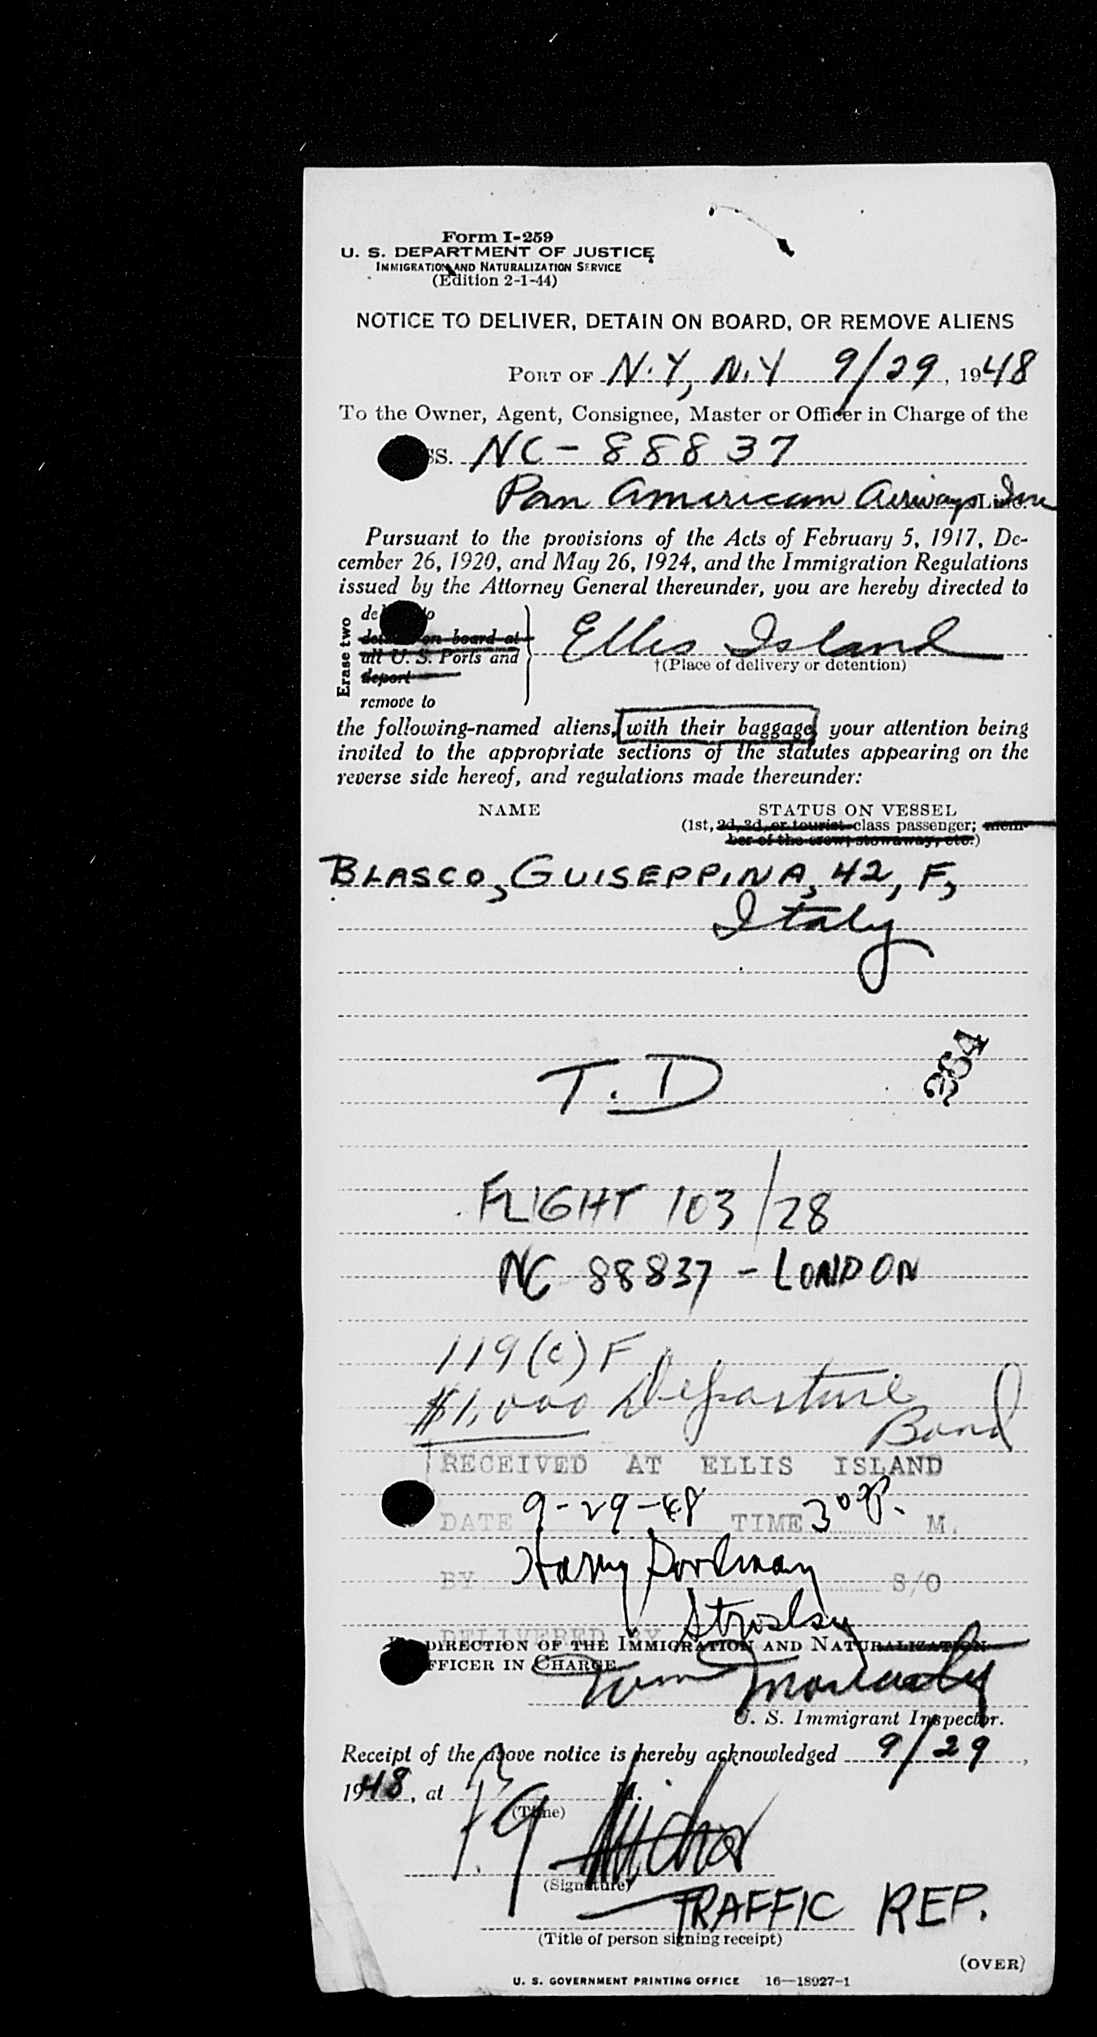 Form I-259
U. S. DEPARTMENT OF JUSTICE
IMMIGRATION AND NATURALIZATION SERVICE
(Edition 2-1-44)
NOTICE TO DELIVER, DETAIN ON BOARD, OR REMOVE ALIENS
PORT OF N.Y, N.Y 9/29, 1948
To the Owner, Agent, Consignee, Master or Officer in Charge of the
SS. NC-88837
Pan American Airways Line Inc
Pursuant to the provisions of the Acts of February 5, 1917, De-
cember 26, 1920, and May 26, 1924, and the Immigration Regulations
issued by the Attorney General thereunder, you are hereby directed to
Erase two
to
on board at
all U. S. Ports and
deport
remove to
Ellis Island
†(Place of delivery or detention)
the following-named aliens, with their baggage, your attention being
invited to the appropriate sections of the statutes appearing on the
reverse side hereof, and regulations made thereunder:
NAME STATUS ON VESSEL
(1st, 2d, 3d, or tourist class passenger; mem-
ber of the crew; stowaway, etc.)
BLASCO, GUISEPPINA, 42, F,
Italy
264
T.D
FLIGHT 103/28
NC 88837 - LONDON
119(c) F
$1,000 Departure
Bond
RECEIVED AT ELLIS ISLAND
DATE 9-29-48 TIME 3 00 P. M.
BY Harry S/O
DELIVERED BY
DIRECTION OF THE IMMIGRATION AND NATURALIZATION
OFFICER IN CHARGE
U. S. Immigrant Inspector.
Receipt of the above notice is hereby acknowledged 9/29,
1948, at M.
(Time)
(Signature)
TRAFFIC REP.
(Title of person signing receipt)
(OVER)
U. S. GOVERNMENT PRINTING OFFICE 16—18927-1